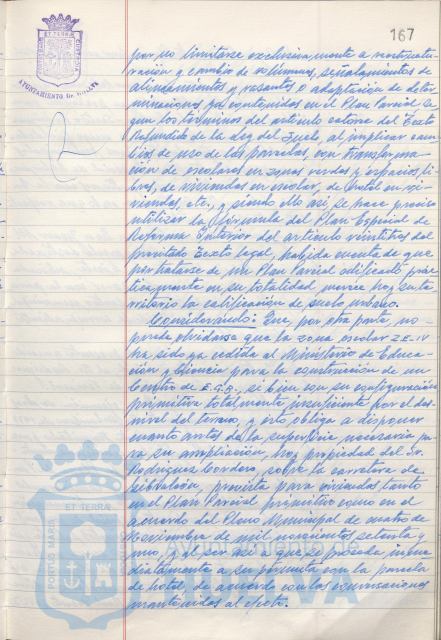 167
AYUNTAMIENTO DE HUELVA
por no limitarse exclusivamente a reestructu-
ración y cambio de volúmenes, señalamientos de
alineamientos y rasantes o adaptación de deter-
minaciones ya contenidas en el Plan Parcial en
que los términos del artículo catorce del Texto
Refundido de la Ley del Suelo, al implicar cam-
bios de uso de las parcelas, con transforma-
ción de escolares en zonas verdes y espacios li-
bres, de viviendas en escolar, de hotel en vi-
viendas, etc., y siendo ello así, se hace preciso
utilizar la fórmula del Plan Especial de
Reforma Interior del artículo veintitres del
precitado Texto legal, habida cuenta de que
por tratarse de un Plan Parcial edificado prác-
ticamente en su totalidad, merece hoy su te-
rritorio la calificación de suelo urbano.
Considerando: Que, por otra parte, no
puede olvidarse que la zona escolar ZE-IV
ha sido ya cedida al Ministerio de Educa-
ción y Ciencia para la construcción de un
Centro de E.G.B., si bien con su configuración
primitiva totalmente insuficiente por el des-
nivel del terreno, y esto obliga a disponer
cuanto antes de la superficie necesaria pa-
ra su ampliación, hoy propiedad del Sr.
Rodríguez Cordero, sobre la carretera de
Gibraleón, prevista para viviendas tanto
en el Plan Parcial primitivo como en el
acuerdo del Pleno Municipal de cuatro de
Noviembre de mil novecientos setenta y
uno, y al ser así a que se proceda inme-
diatamente a su permuta con la parcela
de hotel, de acuerdo con las conversaciones
mantenidas al efecto.
ET TERRA
PORTUS MARIS
HUELVA